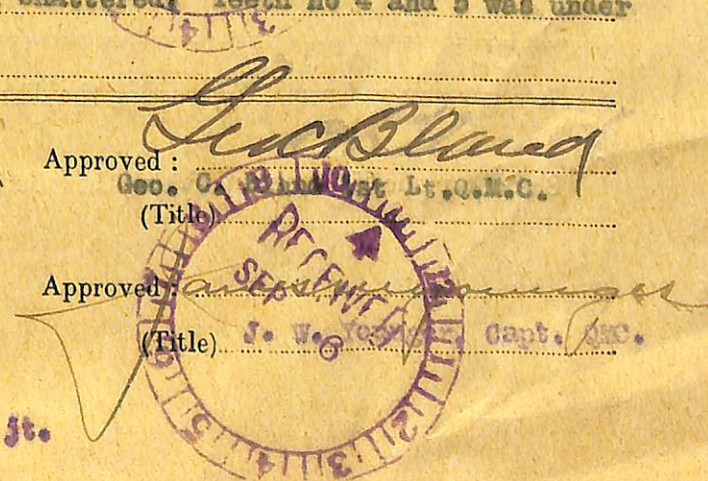 shattered. Teeth no 4 and 5 was under
Geo C Bland
Approved :
Geo. C. Bland 1st Lt.Q.M.C.
(Title)
RECEIVED
SEP 6
Approved
(Title) J. W. Capt. QMC.
Jt.